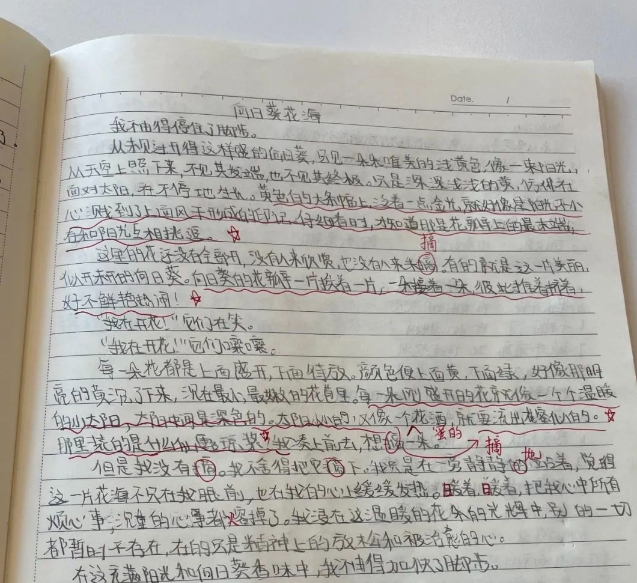 Date. /
向日葵花海
我不由得停住了脚步。
从未见过开得这样盛的向日葵,只见一朵朵唯美的浅黄色,像一束阳光,
从天空上照下来,不见其发端,也不见其终极。只是深深浅浅的黄,仿佛在
面对太阳,并不停地生长。黄色的大和盘上,泛着一点金光,就好像是阳光不小
心洒到了上面风干形成的印记。仔细看时,才知道那是花瓣上的最末端,
在和阳光互相挑逗。
摘
这里的花还没有全部开,没有人来欣赏,也没有人来,有的就是这一片美丽
似开未开的向日葵。向日葵的花瓣一片挨着一片,一朵接着一朵,彼此推着挤着,
好不鲜艳热闹!
"我在开花!"它们在笑。
"我在开花!"它们嚷嚷。
每一朵花都是上面盛开,下面待放。颜色便上面黄,下面绿,好像那明
亮的黄沉了下来,沉在最小最嫩的花骨里,每一朵刚盛开的花就像一个个温暖
的小太阳,太阳中间是深色的,太阳的心又像一个花酒,就要流出蜜似的。
那里装的是什么仙露琼浆?我凑上前去,想一朵。
摘
但是我没有,我不舍得把它下。我只是在一旁静静地站着,觉得
这一片花海不只在我眼前,也在我的心上缓缓发热。暖着,暖着,把我心中所有
烦心事,沉重的心事都熔掉了。我浸在这温暖的花朵的光辉中,别的一切
都暂时不存在,有的只是精神上的放松和被治愈的心。
在这充满阳光和向日葵香味中,我不由得加快了脚步。